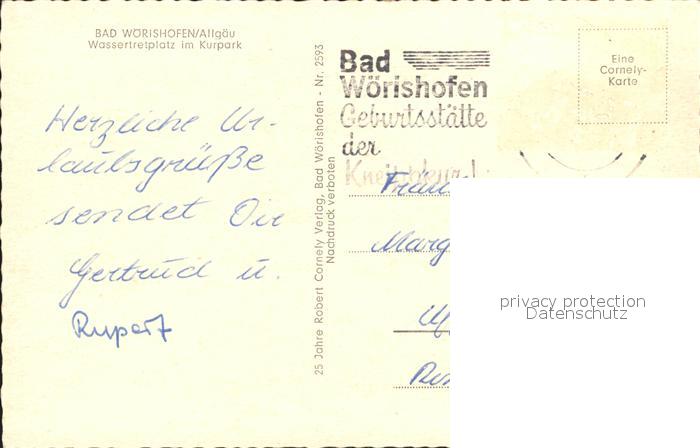 BAD WÖRISHOFEN/Allgäu
Wassertretplatz im Kurpark
Herzliche Ur-
laubsgrüße
sendet Dir
Gertrud u.
Rupert
25 Jahre Robert Cornely Verlag, Bad Wörishofen - Nr. 2593
Nachdruck verboten
Bad
Wörishofen
Geburtsstätte
der
Kneippkur!
Eine
Cornely-
Karte
privacy protection
Datenschutz